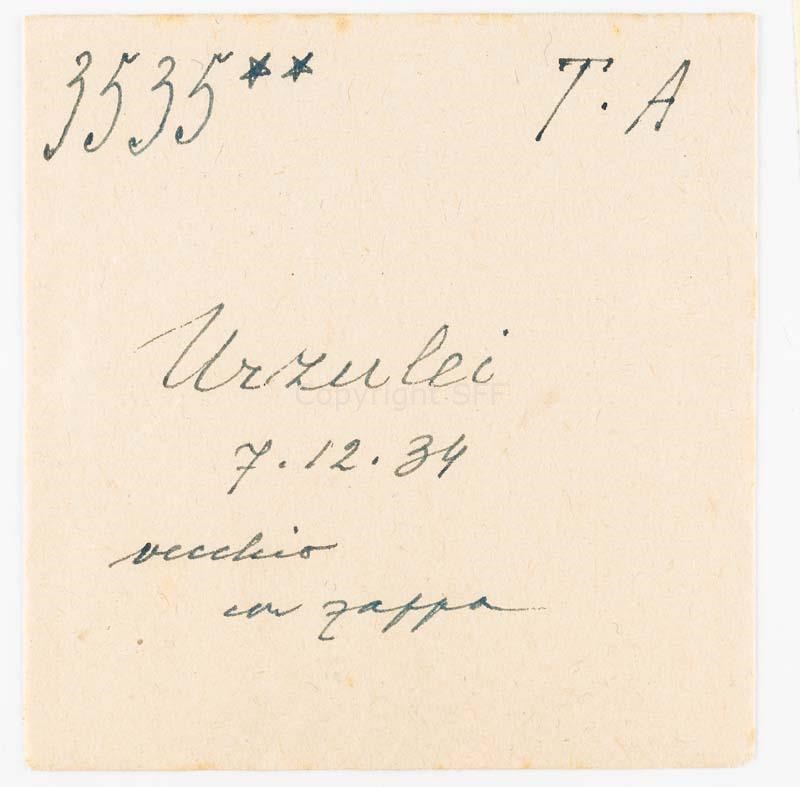 3535** T. A
Urzulei
Copyright SFF
7.12.34
vecchio
con zappa